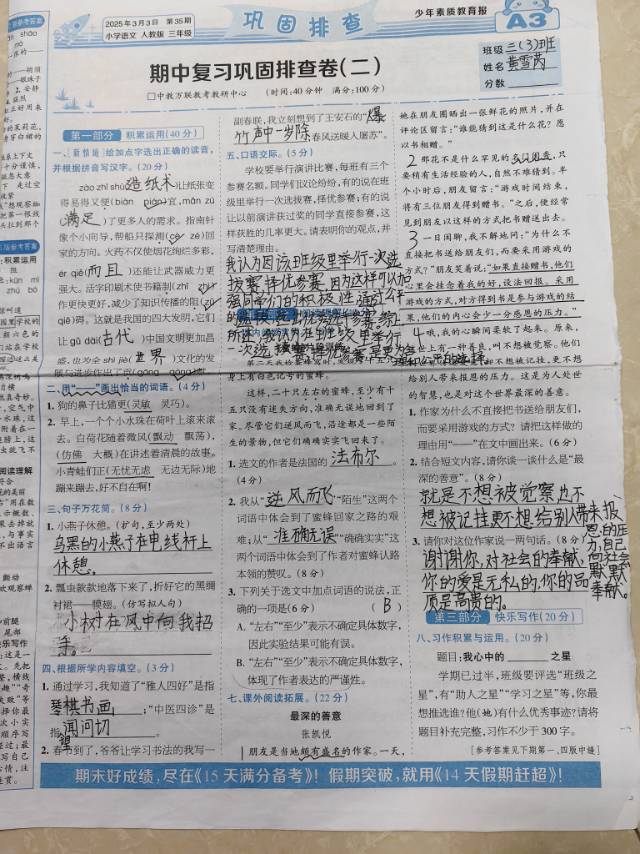 2025年3月3日 第35期
小学语文 人教版 三年级
巩固排查
少年素质教育报
A3
期中复习巩固排查卷(二)
□中教万联教考教研中心 (时间:40分钟 满分:100分)
班级 三(3)班
姓名 黄雪芮
分数
第一部分 积累运用(40分)
一、[新情境]给加点字选出正确的读音,
并根据拼音写汉字。(20分)
zào zhǐ shù(造纸术)让纸张变
得易得又便(biàn pián)宜,mǎn zú
(满足)了更多人的需求。指南针
像个小向导,帮船只探测(cè zè)回
家的方向。火药不仅使烟花绚烂多彩,
ér qiě(而且)还能让武器威力更
强大。活字印刷术使书籍制(zhì
作更便捷,减少了知识传播的阻
qiè)碍。这就是我国的四大发明,它们
让 gǔ dài(古代)中国文明更加昌
盛,也为全 shì jiè(世界)文化的发
二、用“——”画出恰当的词语。(4分)
1. 狗的鼻子比猫更(灵敏 灵巧)。
2. 早上,一个个小水珠在荷叶上滚来滚
去。白荷花随着微风(飘动 飘荡),
(仿佛 大概)在讲述着清晨的故事。
小青蛙们正(无忧无虑 无边无际)地
蹦来蹦去,好不自在啊!
三、句子万花筒。(8分)
1. 小燕子休憩。(扩句,至少两处)
乌黑的小燕子在电线杆上
休憩。
2. 瓢虫款款地落下来了,折好它的黑绸
衬裙——膜翅。(仿写拟人句)
小树在风中向我招
手。
四、根据所学内容填空。(3分)
1. 通过学习,我知道了“雅人四好”是指
琴棋书画;“中医四诊”是
指望闻问切。
2. 春节到了,爷爷让学习书法的我写一
副春联,我立刻想到了王安石的“爆
竹声中一岁除,春风送暖入屠苏”。
五、口语交际。(5分)
学校要举行演讲比赛,每班有三个
参赛名额,同学们议论纷纷,有的说在班
级里举行一次选拔赛,择优参赛;有的说
让以前演讲获过奖的同学直接参赛,这
样获胜的几率更大。请表明你的观点,并
写清楚理由。
我认为因该班级里举行一次选
拔赛择优参赛,因为这样可以加
强同学们的积极性
所述,我认为在班级里举行
一次选
身上有白色记号的蜜蜂。
这样,二十只左右的蜜蜂,至少有十
五只没有迷失方向,准确无误地回到了
家。尽管它们逆风而飞,沿途都是一些陌
生的景物,但它们确确实实飞回来了。
1. 选文的作者是法国的 法布尔。
(4分)
2. 我从“逆风而飞”“陌生”这两个
词语中体会到了蜜蜂回家之路的艰
难;从“准确无误”“确确实实”这
两个词语中体会到了作者对蜜蜂认路
本领的赞叹。(8分)
3. 下列关于选文中加点词语的说法,正
确的一项是(6分) (B)
A. “左右”“至少”表示不确定具体数字,
因此实验结果可能有误。
B. “左右”“至少”表示不确定具体数字,
体现了作者表达的严谨性。
七、课外阅读拓展。(22分)
最深的善意
张凯悦
1 朋友是当地颇有盛名的作家。一天,
他在朋友圈晒出一张鲜花的照片,并在
评论区留言:“谁能猜到这是什么花?愿
以书相赠。”
2 那花不是什么罕见的奇花异葩,只
要稍有生活经验的人,自然不难猜到。半
个小时后,朋友留言:“游戏时间结束,
将有三位朋友得到赠书。”之后,便经常
见到朋友以这样的方式把书赠送出去。
3 一日闲聊,我不解地问:“为什么不
直接把书送给朋友们,而要采用游戏的
方式?”朋友笑着说:“如果直接赠书,他们
心里会挂念着我的好,设法回报。采用
游戏的方式,对方得到书是参与游戏的结
果,他们的内心会少一分感恩的压力。”
4 哦,我的心瞬间柔软了起来。原来,
世上有一种善良,叫不想被觉察。他们
不想被记挂,更不想
给别人带来报恩的压力。这是为人处世
的智慧,也是对这个世界最深的善意。
1. 作家为什么不直接把书送给朋友们,
而要采用游戏的方式?请把这样做的
理由用“——”在文中画出来。(6分)
2. 结合短文内容,请你谈一谈什么是“最
深的善意”。(8分)
就是不想被觉察也不
想被记挂更不想给别人带来报
恩的压力,自己向社会默默奉献。
3. 请你对这位作家说一两句话。(8分)
谢谢你,对社会的奉献,
你的爱是无私的,你的品
质是高贵的。
第三部分 快乐写作(20分)
八、习作积累与运用。(20分)
题目:我心中的______之星
学期已过半,班级要评选“班级之
星”,有“助人之星”“学习之星”等,你最
想推选谁?他(她)有什么优秀事迹?请将
题目补充完整,习作不少于300字。
[参考答案见下期第一、四版中缝]
期末好成绩,尽在《15天满分备考》!假期突破,就用《14天假期赶超》!